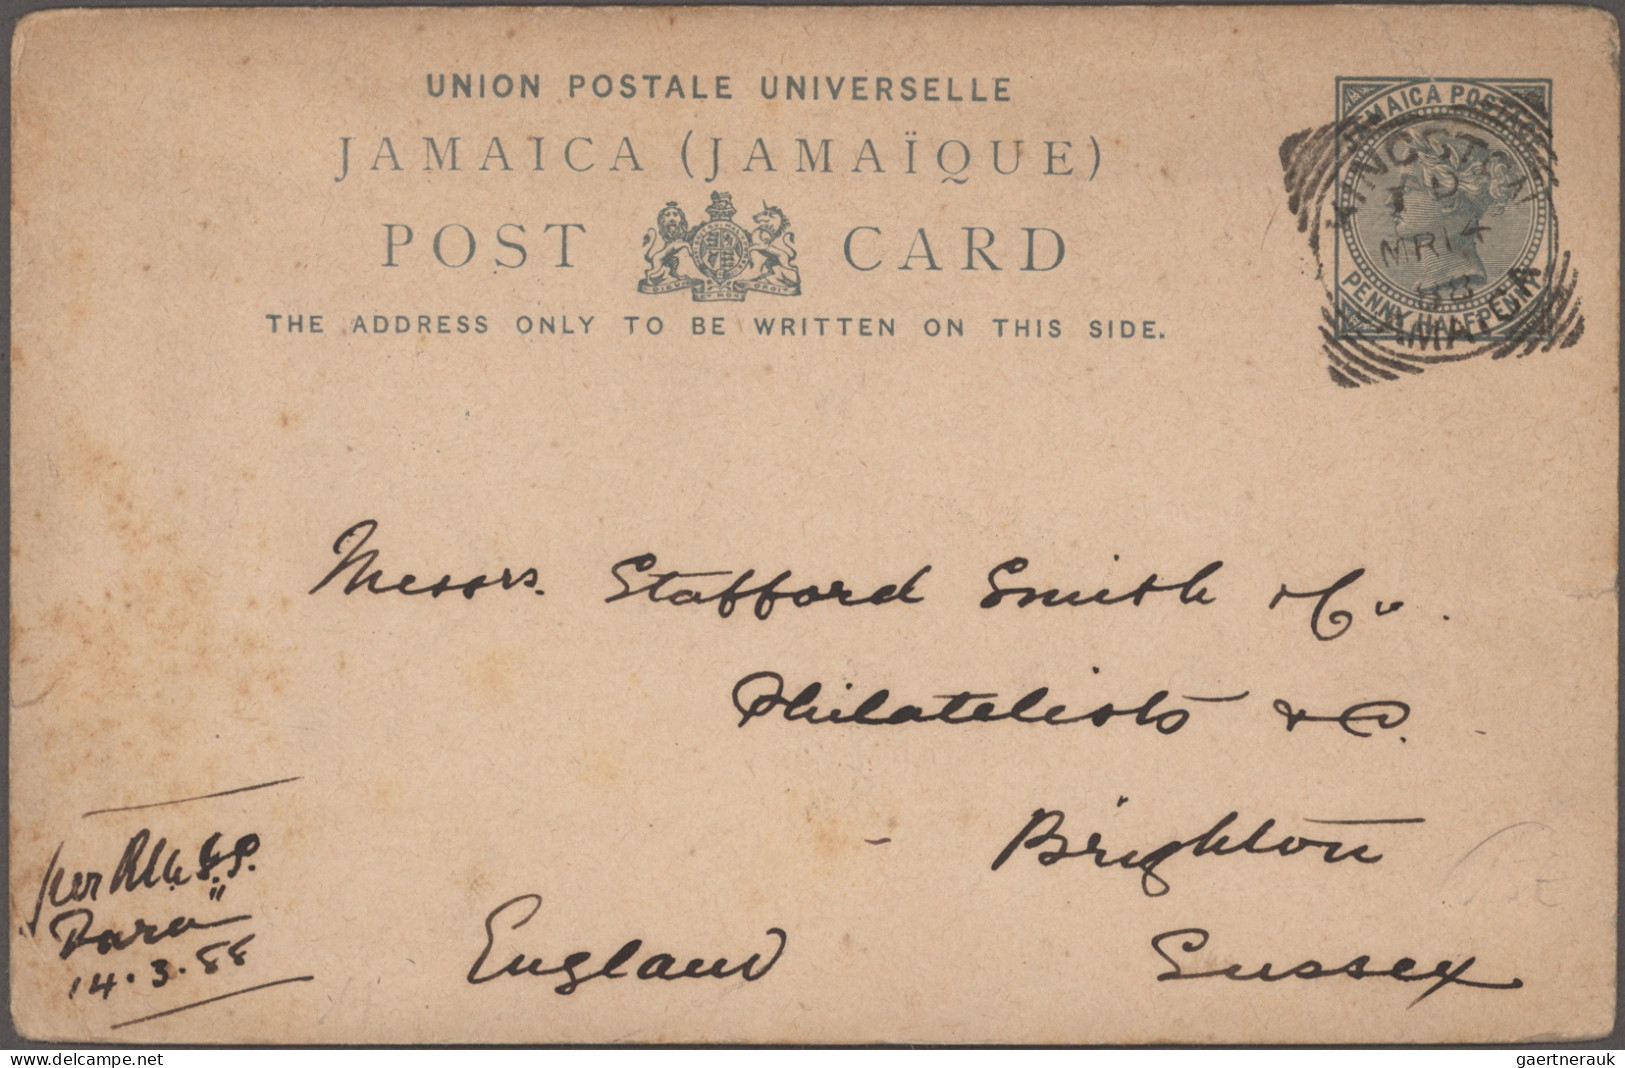 UNION POSTALE UNIVERSELLE
JAMAICA (JAMAÏQUE)
POST CARD
THE ADDRESS ONLY TO BE WRITTEN ON THIS SIDE.
JAMAICA POSTAGE
PENNY HALFPENNY
KINGSTON
D
MR14
88
JAMAICA
Messrs. Stafford Smith & Co.
Philatelists &c.
Brighton
Sussex
England
per R.M.S.S.
"Para"
14.3.88
gaertnerauk